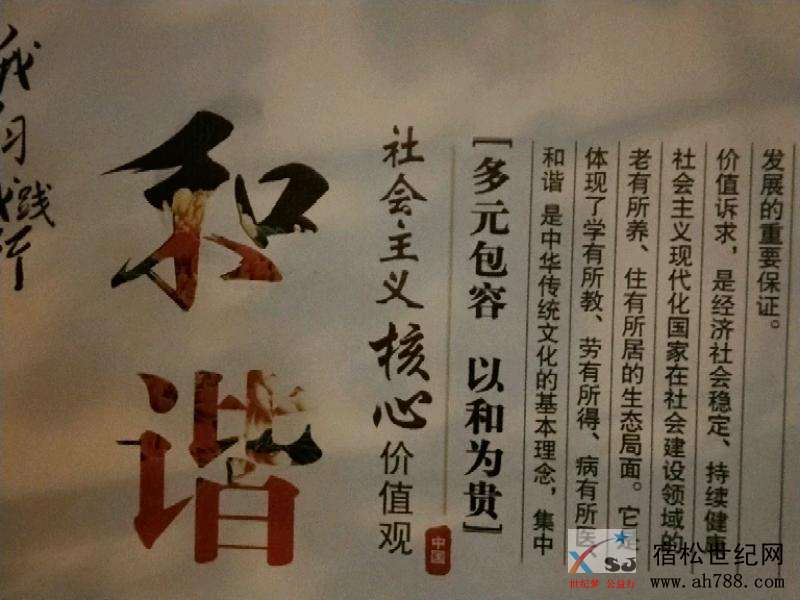 我习
践行
和谐
社会主义核心价值观
中国
[多元包容 以和为贵]
和谐 是中华传统文化的基本理念，集中
体现了学有所教、劳有所得、病有所医、
老有所养、住有所居的生态局面。它是
社会主义现代化国家在社会建设领域的
价值诉求，是经济社会稳定、持续健康
发展的重要保证。
XSJ
世纪梦 公益行
宿松世纪网
www.ah788.com